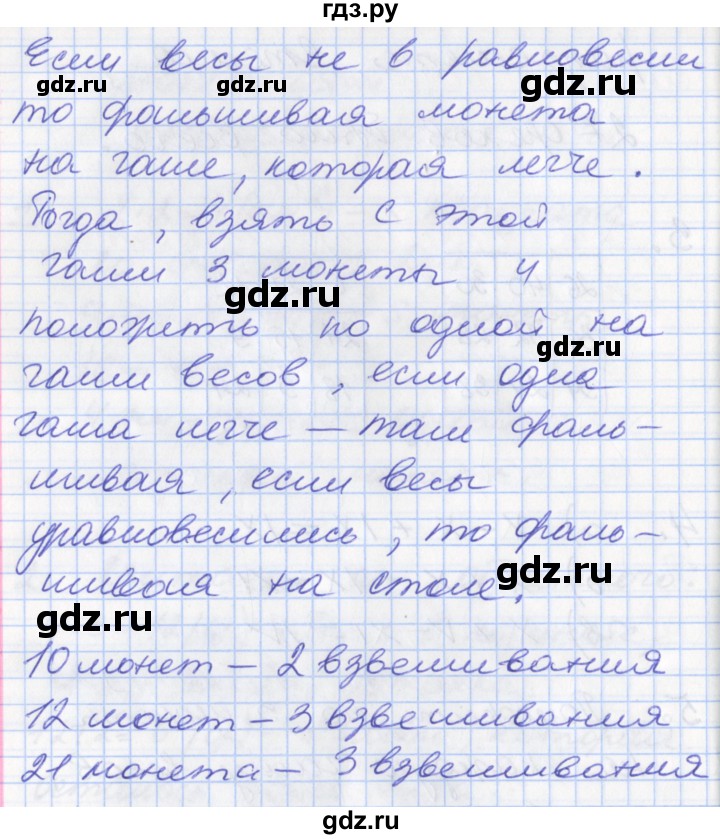 гдз.ру
Если весы не в равновесии
gdz.ru gdz.ru gdz.ru
то фальшивая монета
на чаше, которая легче.
Тогда, взять с этой
чаши 3 монеты и
gdz.ru
положить по одной на
gdz.ru
чаши весов, если одна
чаша легче – там фаль–
шивая, если весы
уравновесились, то фаль–
шивая на столе.
gdz.ru
gdz.ru
10 монет – 2 взвешивания
12 монет – 3 взвешивания
21 монета – 3 взвешивания
gdz.ru gdz.ru